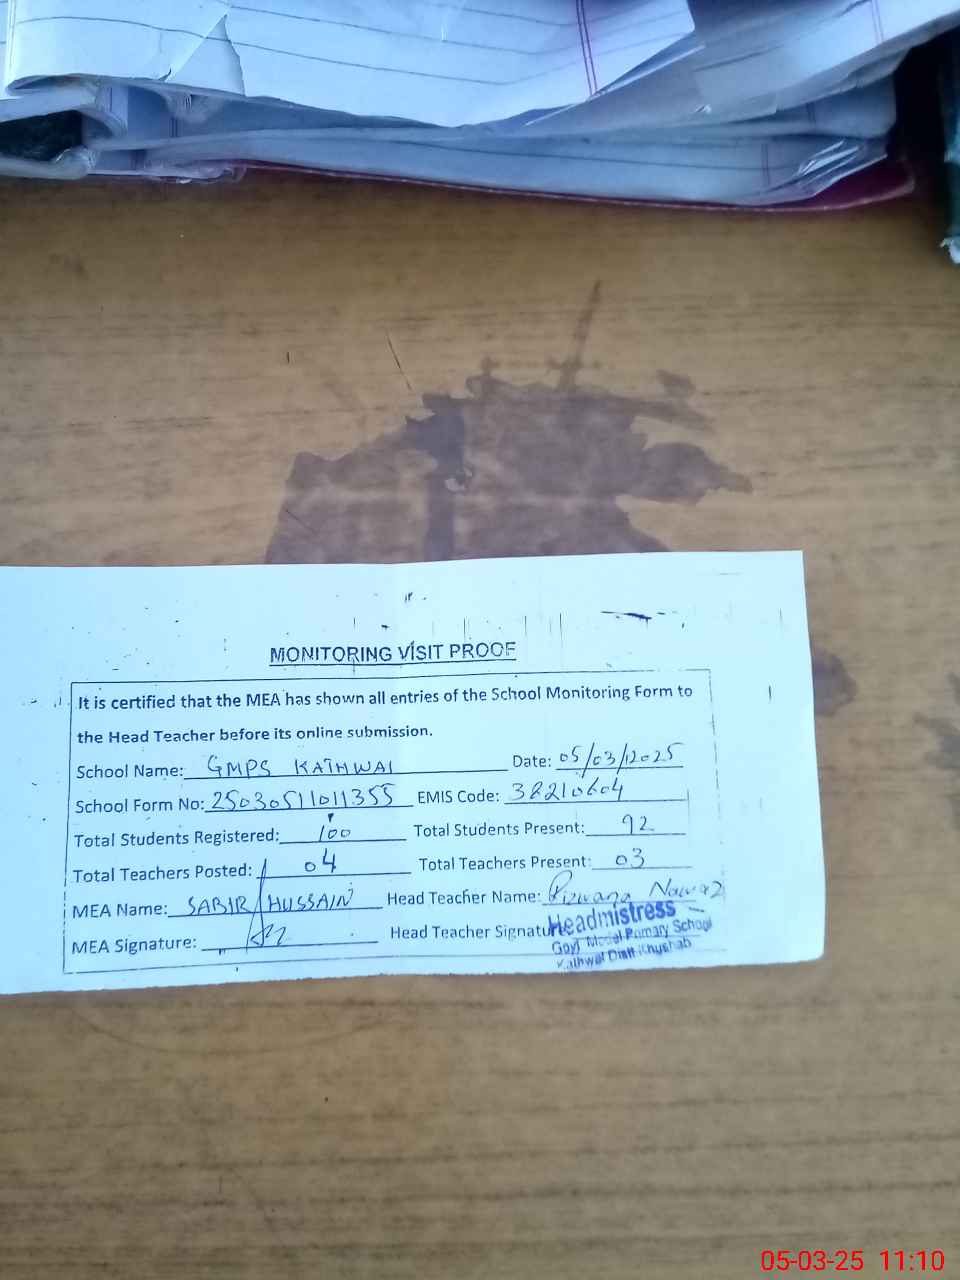 MONITORING VISIT PROOF
It is certified that the MEA has shown all entries of the School Monitoring Form to
the Head Teacher before its online submission.
School Name: GMPS KATHWAI Date: 05/03/2025
School Form No: 25030511011355 EMIS Code: 38210604
Total Students Registered: 100 Total Students Present: 92
Total Teachers Posted: 04 Total Teachers Present: 03
MEA Name: SABIR HUSSAIN Head Teacher Name: Rizwana Nawaz
MEA Signature: Head Teacher Signatu
Headmistress
Govt Model Primary School
Kathwai Distt Khushab
05-03-25 11:10